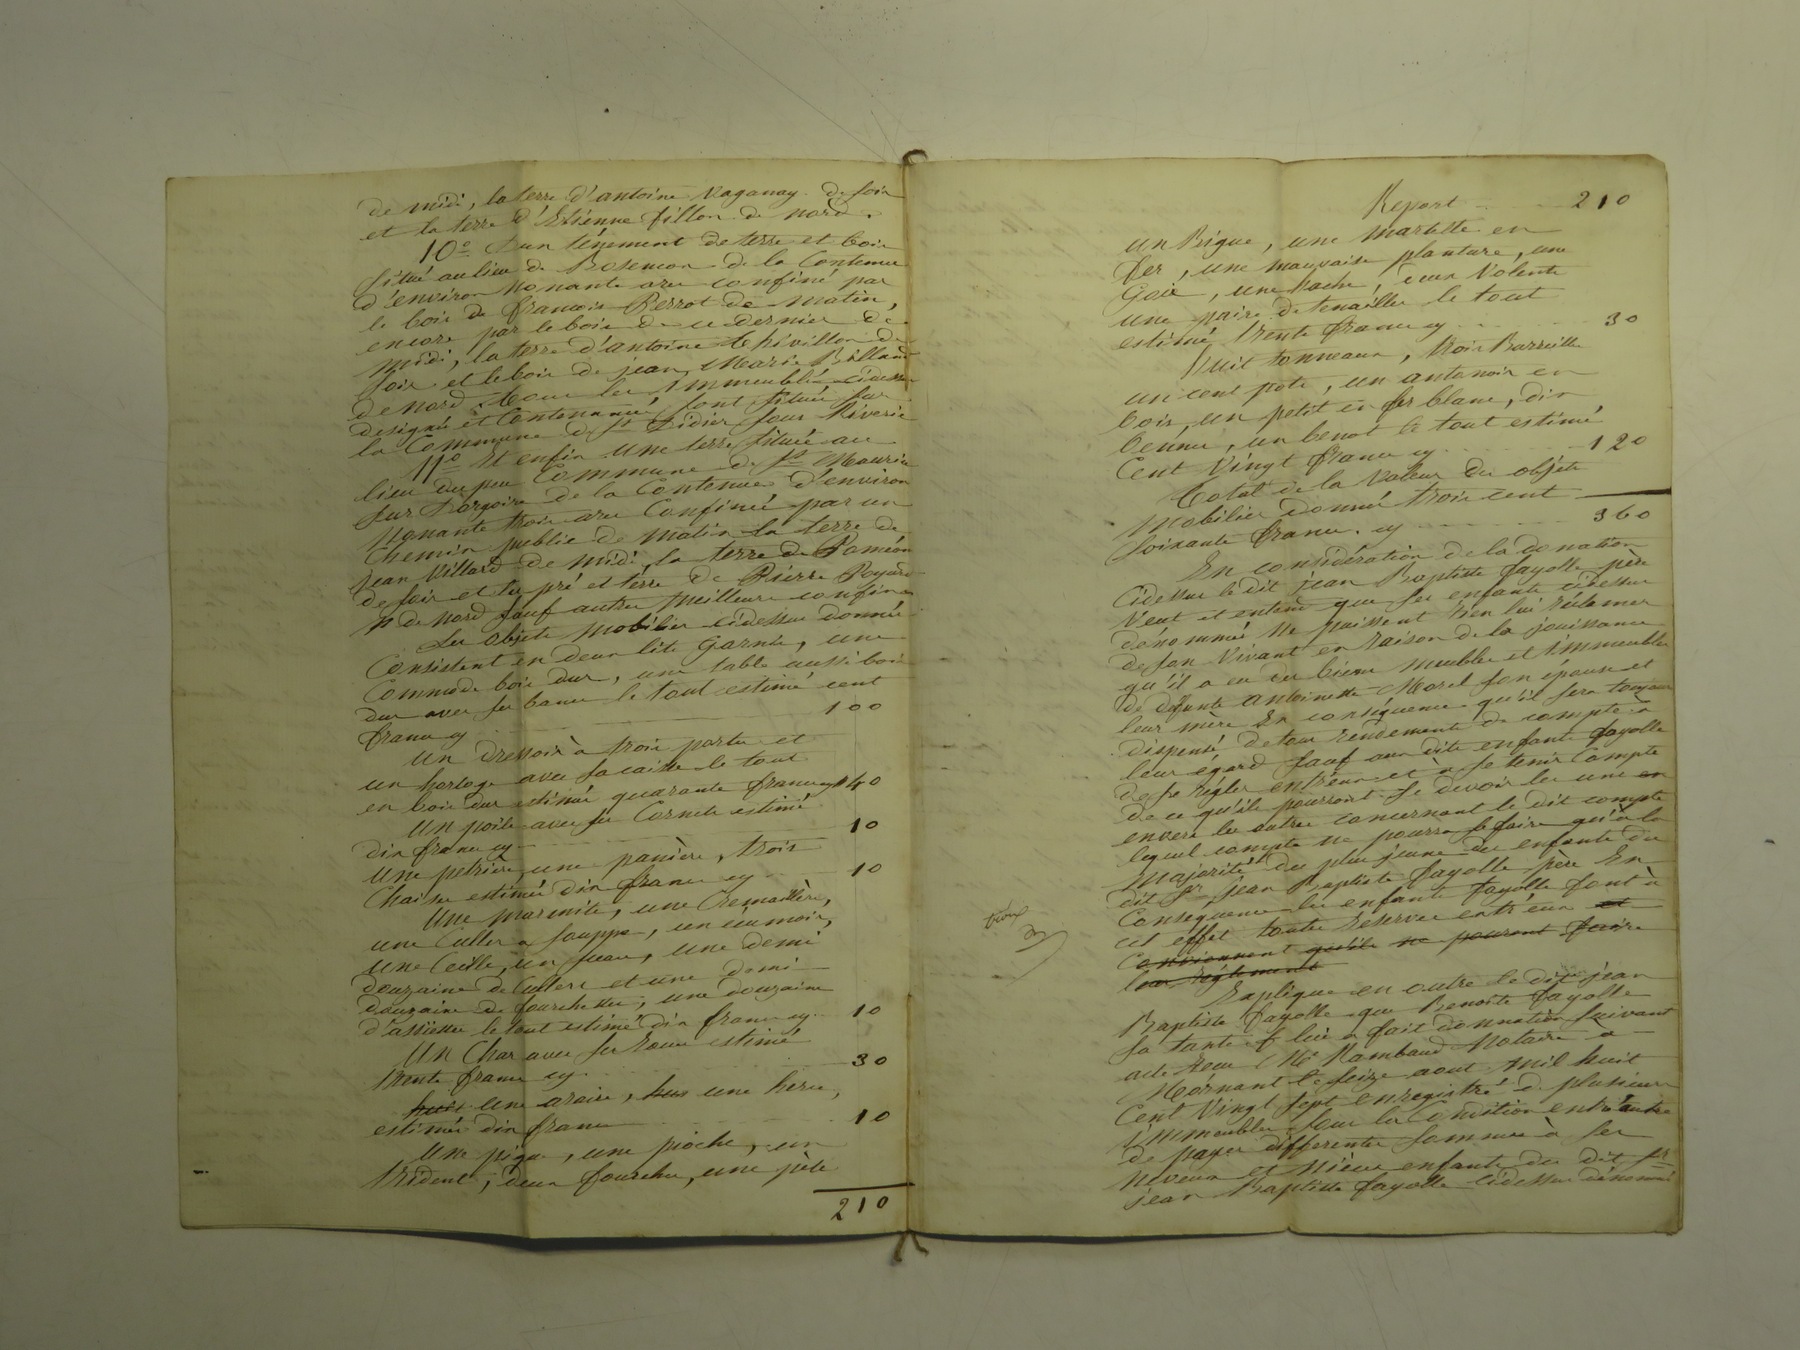 de midi, la terre d'antoine Vaganay de soir
et la terre d'Etienne fillon de nord.
10° D'un ténement de terre et bois
situé au lieu de Rosemon de la Contenue
d'environ nonante ares confiné par
le bois de françois Perrot de matin,
encore par le bois de ce dernier de
midi, la terre d'antoine thivillon de
soir et le bois de jean Marie Billand
de nord. tous les immeubles cidessus
designés et Contenancés sont situés sur
la Commune de St Didier sous Riverie
11° Et enfin une terre située au
lieu du peu Commune de St Maurice
sur Dargoire de la Contenue d'environ
Nonante trois ares Confinée par un
Chemin public de matin la terre de
jean Villard de midi, la terre de Paméon
de soir et les pré et terre de Pierre Poyard
de nord sauf autres meilleurs confins
Les objets mobiliers cidessus donnés
Consistent en deux lits garnis, une
Commode bois dur, une table aussi bois
dur avec ses bancs le tout estimé cent
francs cy 100
Un dressoir à trois portes et
un horloge avec sa caisse le tout
en bois dur estimés quarante francs cy 40
Un poile avec ses Cornets estimé
dix francs cy 10
Une petrière, une panière, trois
Chaises estimés dix francs cy 10
Une marmite, une Cremaillère,
une Culler a souppe, un ecumoir,
une Seille, un seau, une demi
douzaine de Cullers et une demi
douzaine de fourchettes, une douzaine
d'assiettes le tout estimé dix francs cy 10
Un Char avec ses Roues estimé
trente francs cy 30
huit une araire, huit une herse,
estimés dix francs 10
Une pique, une pioche, un
trident, deux fourches, une pèle
210
Report 210
un Bigue, une martelle en
fer, une mauvaise planture, une
Goie, une hache, deux Volents
une paire de tenailles le tout
estimé trente francs cy 30
Huit tonneaux, trois Barreilles
un cent pots, un antonoir en
bois, un petit en fer blanc, dix
bennes, un benot le tout estimé
Cent Vingt francs cy 120
Total de la Valeur des objets
mobilier donnés trois cent
soixante francs. cy 360
En considération de la donation
Cidessus le dit jean Baptiste fayolle père
Veut et entend que ses enfants cidessus
dénommés ne puissent rien lui réclamer
de son Vivant en raison de la jouissance
qu'il a eu des biens meubles et immeubles
de defunte antoinette Morel son épouse et
leur mère En conséquence qu'il sera toujours
dispensé de tous rendements de compte à
leur égard sauf aux dits enfants fayolle
de se régler entr'eux et à se tenir Compte
de ce qu'ils pourront se devoir les uns en
envers les autres concernant le dit compte
lequel compte ne pourra se faire qu'à la
Majorité du plus jeune des enfants du
dit Sr jean Baptiste fayolle père En
Conséquence les enfants fayolle font à
cet effet toutes Réserves entr'eux et
Conviennent qu'ils ne pouront faire
leur réglement
Explique en outre le dit jean
Baptiste fayolle que Benoite fayolle
sa tante lui a fait donnation suivant
acte Reçu Me Rambaud Notaire à
Mornant le seize aout mil huit
Cent Vingt sept enregistré de plusieurs
immeubles sous la Condition entr'autre
de payer differentes sommes à ses
neveux et nièces enfants du dit Sr
jean Baptiste fayolle cidessus dénommés